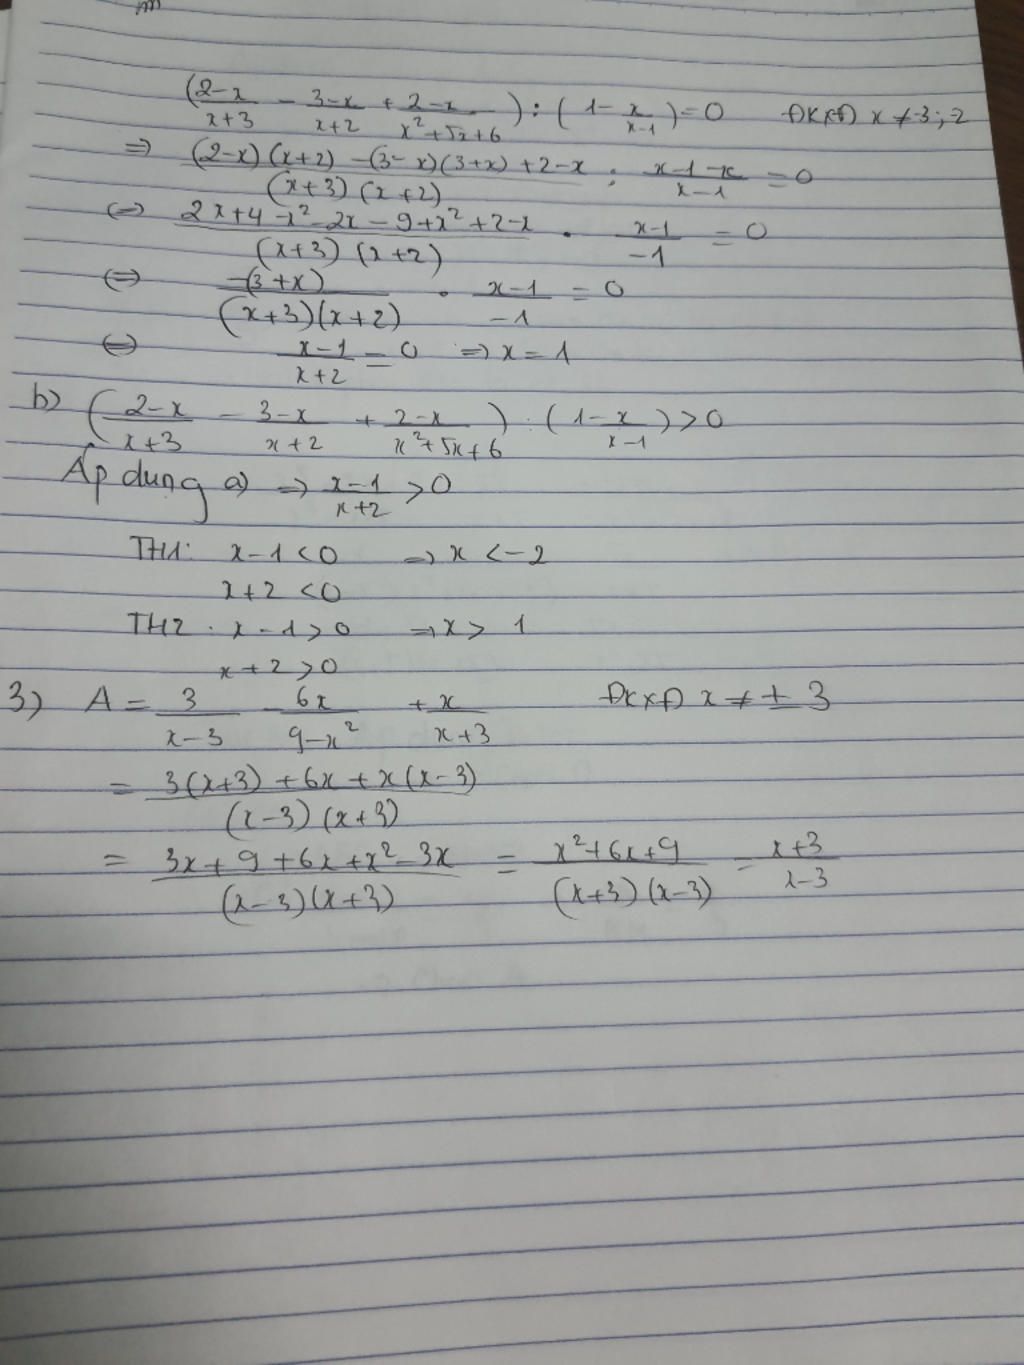 (2-x/x+3 - 3-x/x+2 + 2-x/x²+5x+6) : (1 - x/x-1) = 0 ĐKXĐ x ≠ -3; -2
=> (2-x)(x+2) - (3-x)(3+x) + 2-x/(x+3)(x+2) : x-1-x/x-1 = 0
<=> 2x+4-x²-2x-9+x²+2-x/(x+3)(x+2) . x-1/-1 = 0
<=> -(3+x)/(x+3)(x+2) . x-1/-1 = 0
<=> x-1/x+2 = 0 => x = 1
b) (2-x/x+3 - 3-x/x+2 + 2-x/x²+5x+6) : (1 - x/x-1) > 0
Áp dụng a) => x-1/x+2 > 0
TH1: x-1 < 0 => x < -2
x+2 < 0
TH2: x-1 > 0 => x > 1
x+2 > 0
3) A = 3/x-3 - 6x/9-x² + x/x+3 ĐKXĐ x ≠ ± 3
= 3(x+3) + 6x + x(x-3)/(x-3)(x+3)
= 3x + 9 + 6x + x² - 3x/(x-3)(x+3) = x²+6x+9/(x+3)(x-3) = x+3/x-3